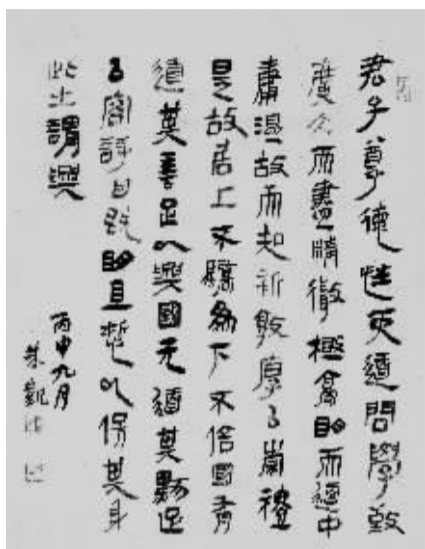 君子尊德性而道問學致
廣大而盡精微極高明而道中
庸溫故而知新敦厚以崇禮
是故居上不驕為下不倍國有
道其言足以興國无道其默足
以容詩曰既明且哲以保其身
此之謂與
丙申九月